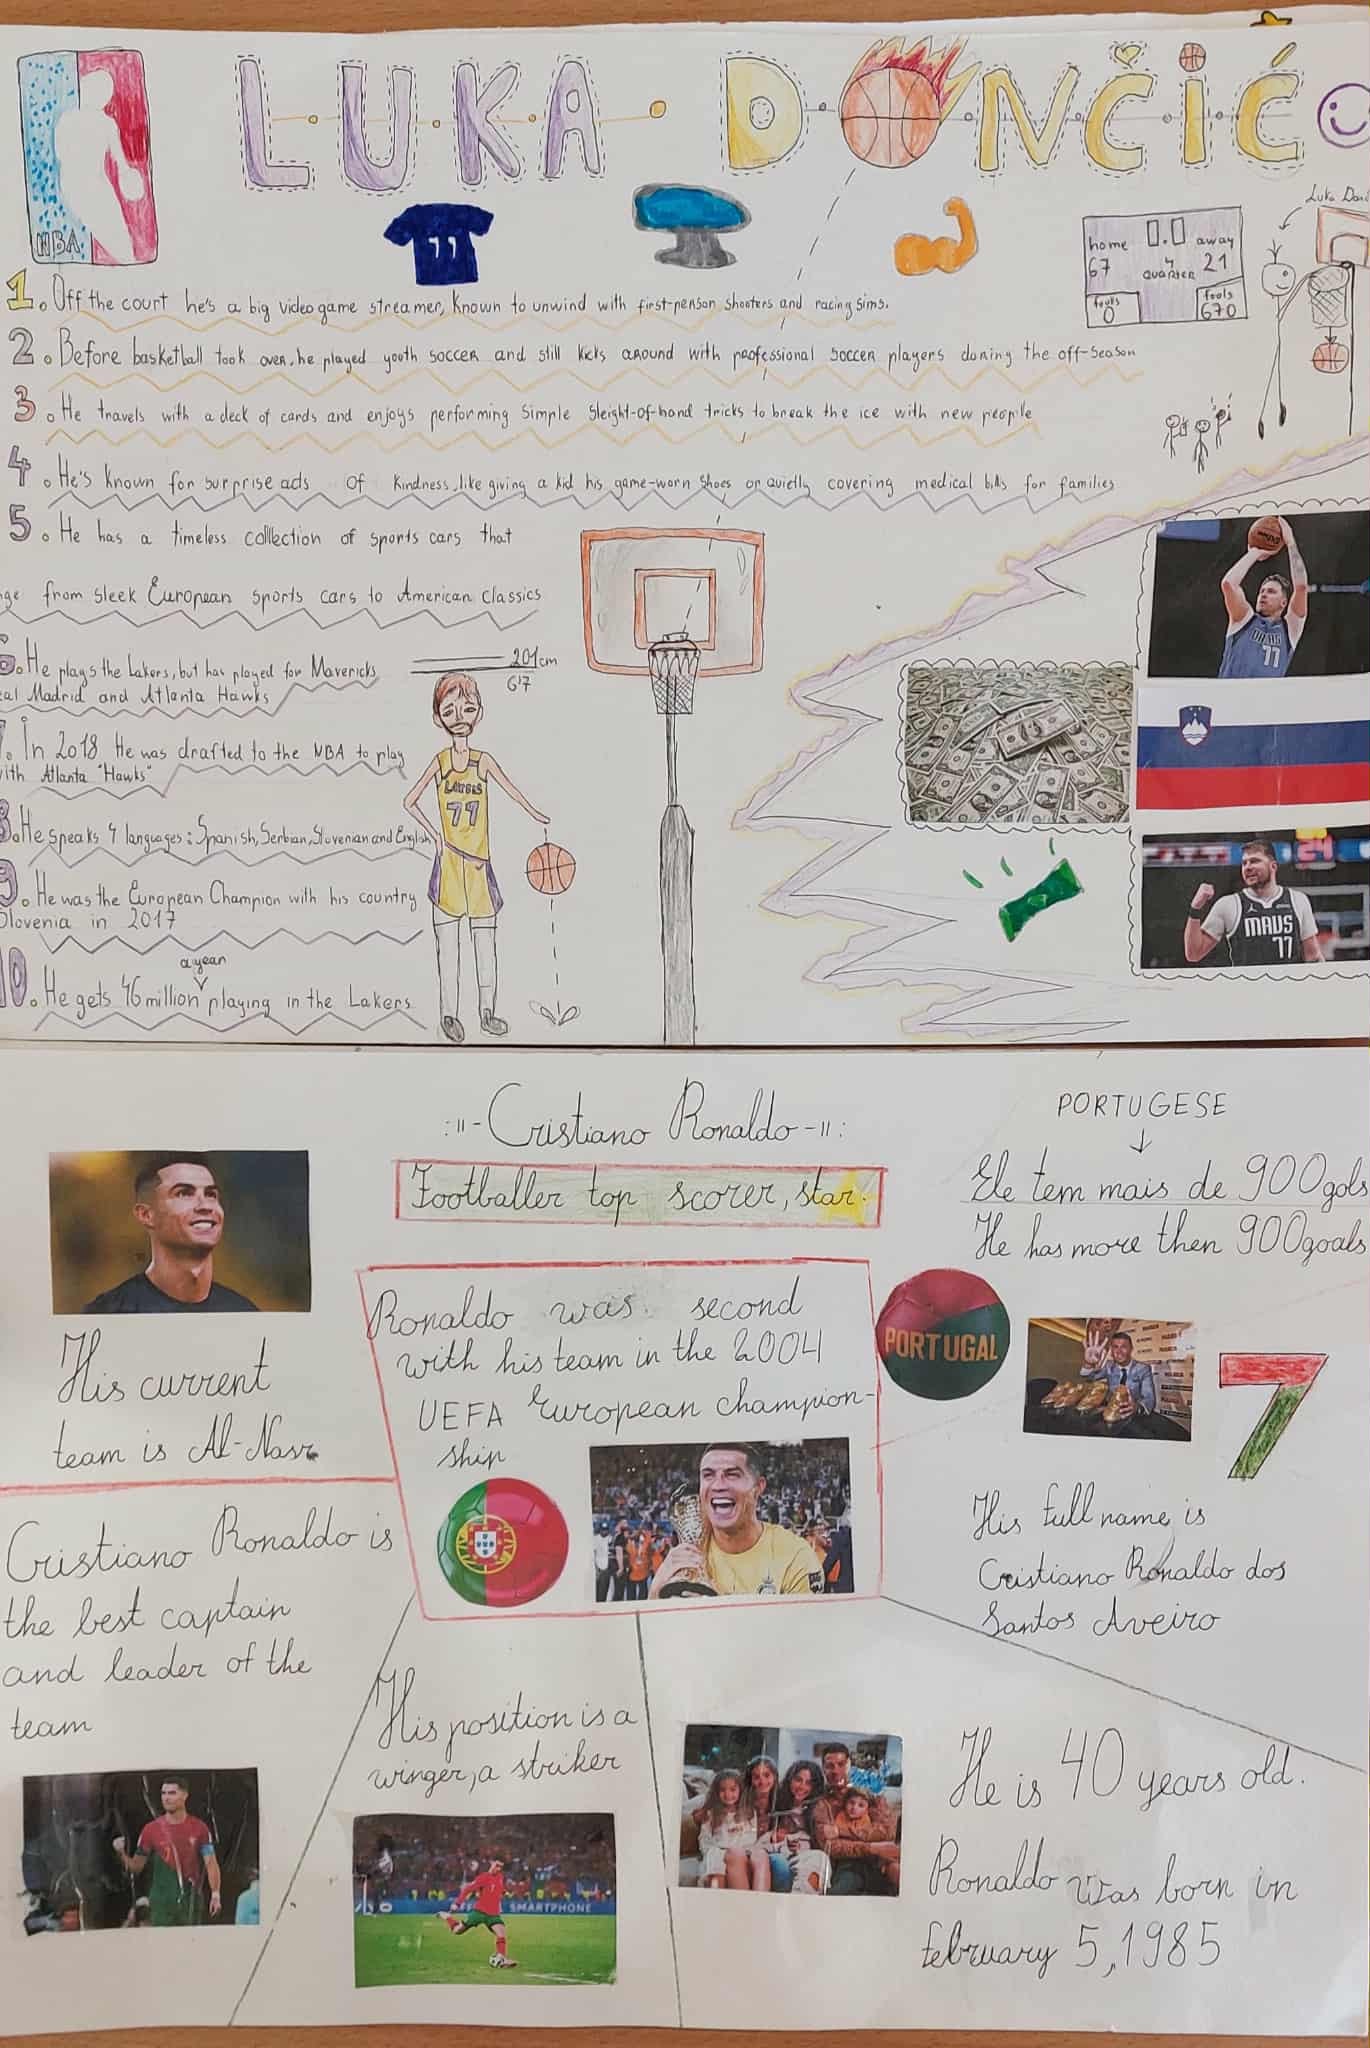 LUKA DONČIĆ
NBA
77
Luka
home 0.0 away
67 4 21
quarter
fouls fouls
0 670
1. Off the court he's a big video game streamer, known to unwind with first-person shooters and racing sims.
2. Before basketball took over, he played youth soccer and still kicks around with professional soccer players during the off-season
3. He travels with a deck of cards and enjoys performing simple sleight-of-hand tricks to break the ice with new people
4. He's known for surprise acts of kindness, like giving a kid his game-worn shoes or quietly covering medical bills for families
5. He has a timeless collection of sports cars that
from sleek European sports cars to American classics
6. He plays the Lakers, but has played for Mavericks
Madrid and Atlanta Hawks
201cm
6'7
7. In 2018 He was drafted to the NBA to play
with Atlanta "Hawks"
8. He speaks 4 languages: Spanish, Serbian, Slovenian and English
9. He was the European Champion with his country
Slovenia in 2017
a year
10. He gets 46 million playing in the Lakers
LAKERS
77
77
MAVS
77
:ıı- Cristiano Ronaldo -ıı:
Footballer top scorer, star.
PORTUGESE
Ele tem mais de 900gols
He has more then 900goals
Ronaldo was second
with his team in the 2004
UEFA European champion-
ship
PORTUGAL
7
His current
team is Al-Nasr
His full name is
Cristiano Ronaldo dos
Santos Aveiro
Cristiano Ronaldo is
the best captain
and leader of the
team
His position is a
winger, a striker
SMARTPHONE
He is 40 years old.
Ronaldo was born in
february 5,1985